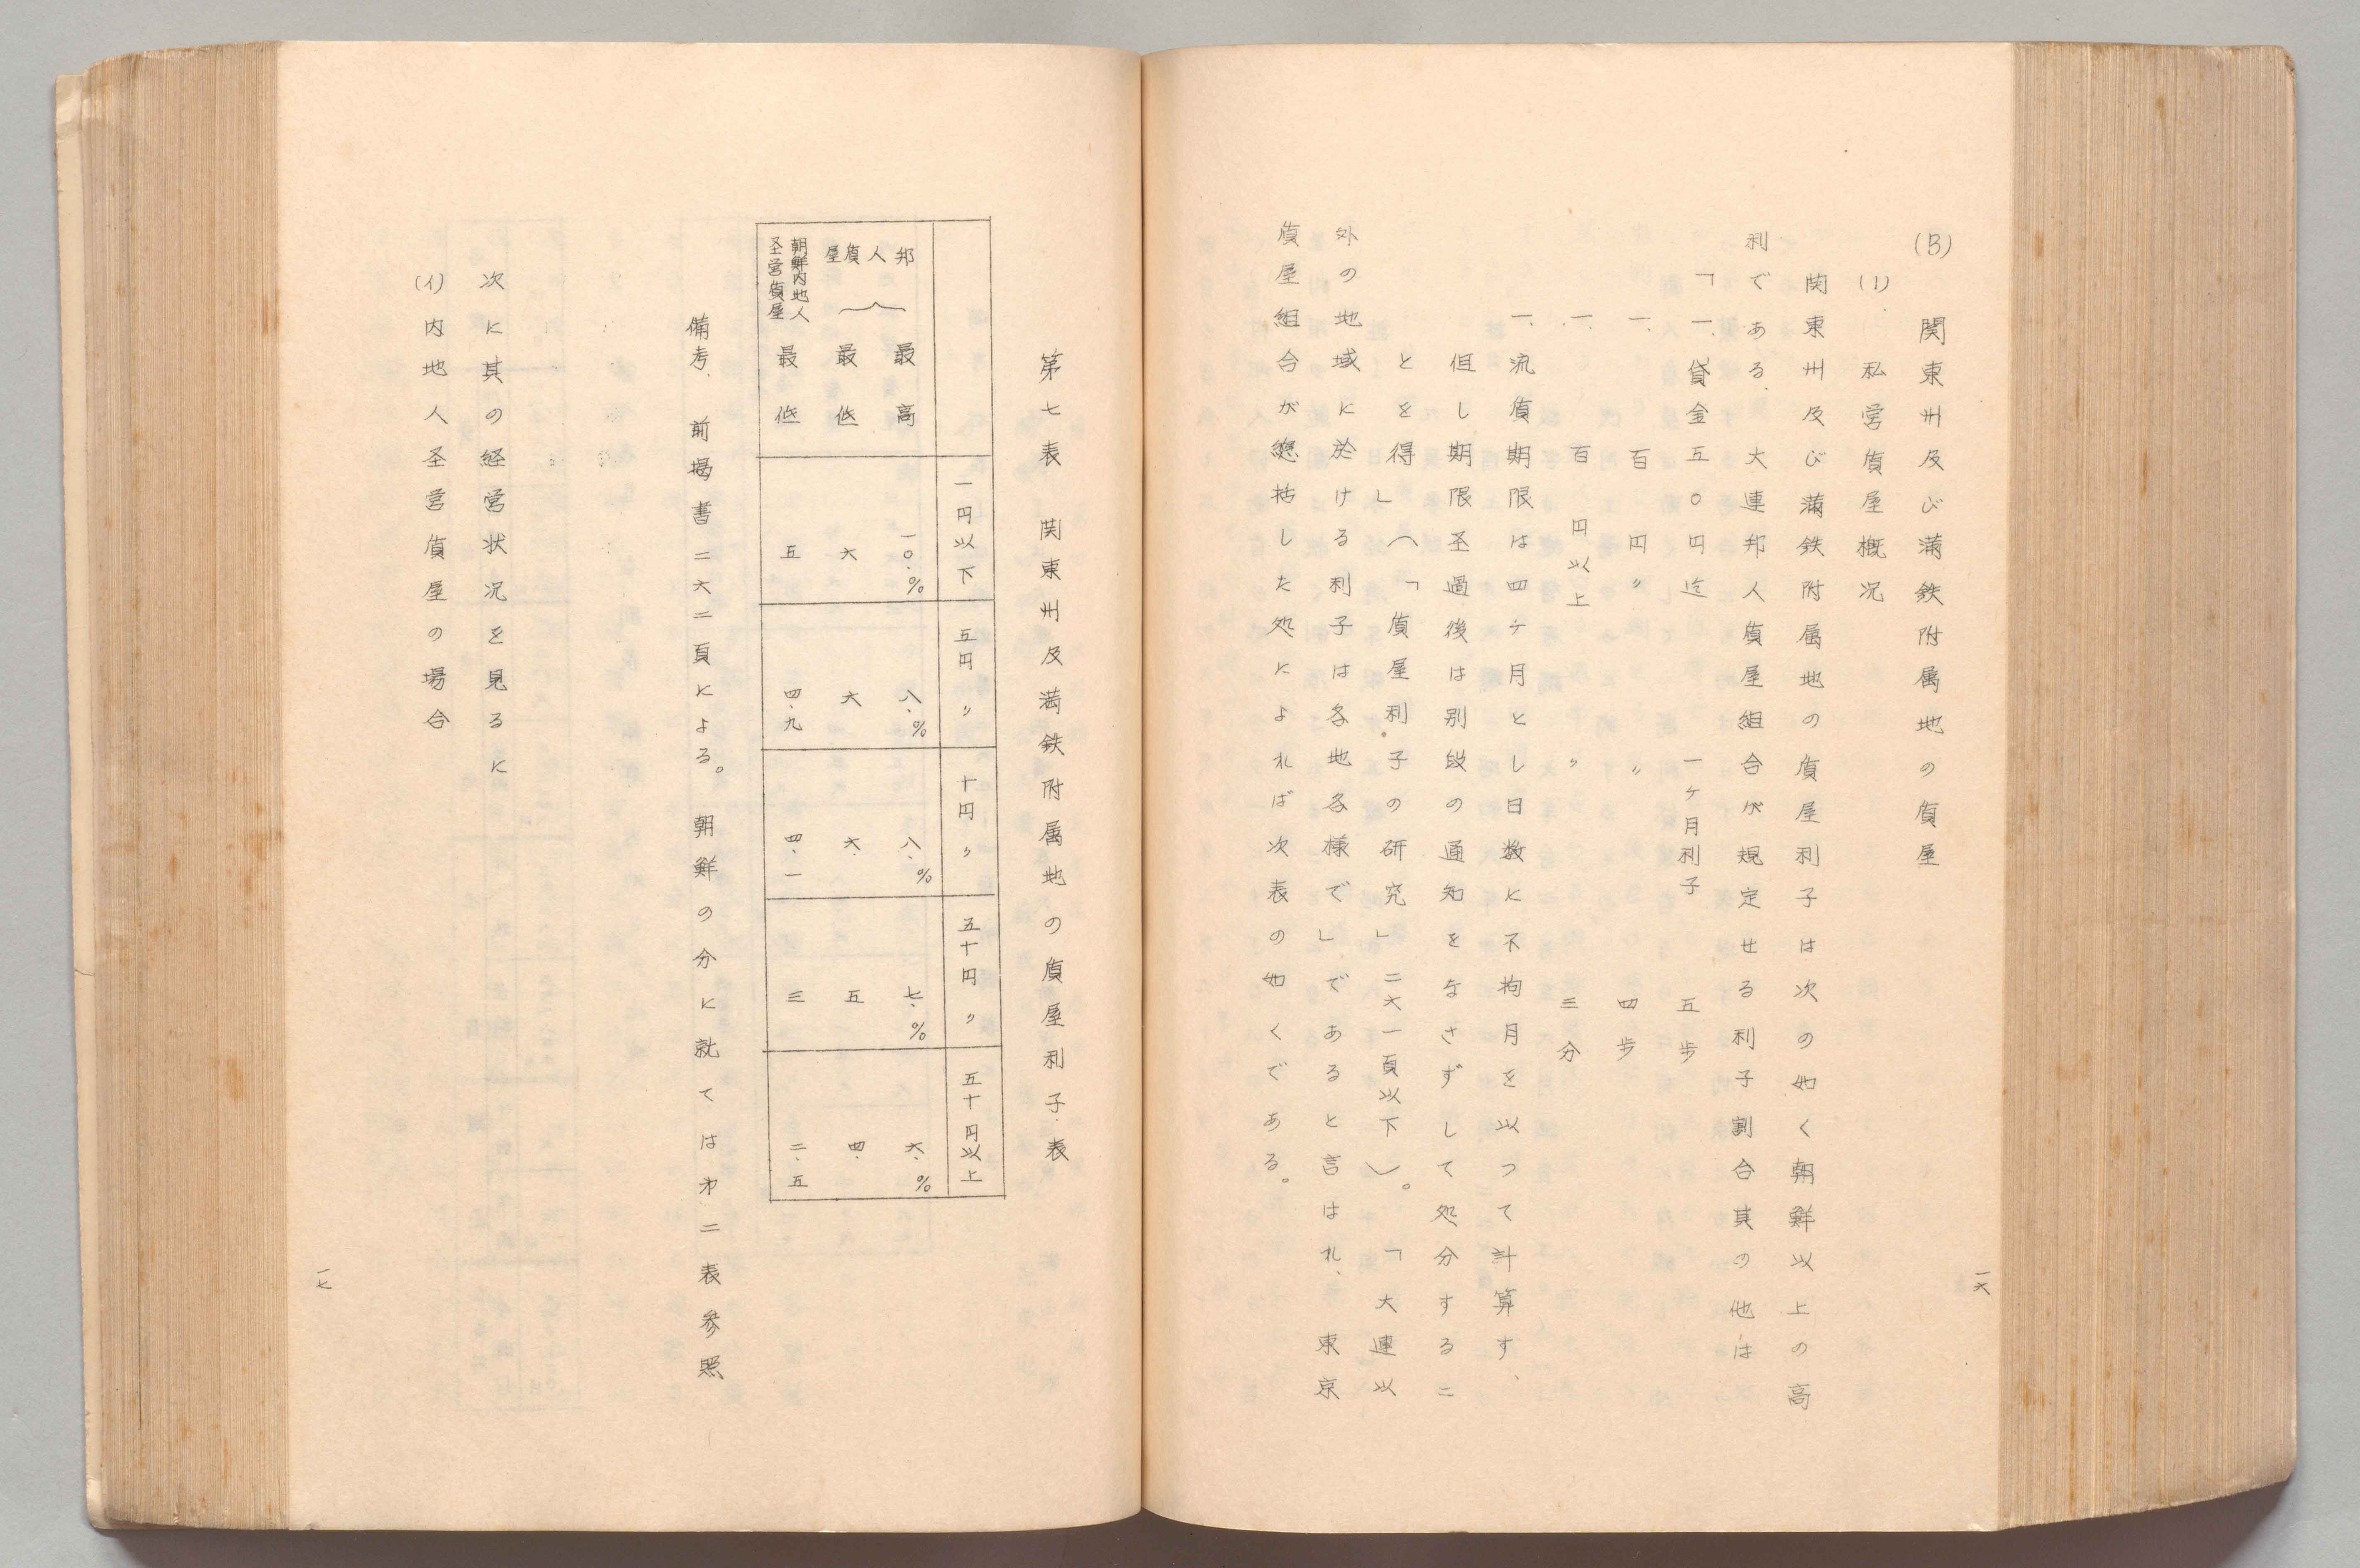 (B) 関東州及び満鉄附属地の質屋
(1) 私営質屋概況
関東州及び満鉄附属地の質屋利子は次の如く朝鮮以上の高
利である、大連邦人質屋組合が規定せる利子割合其の他は
「一、貸金五〇円迄 一ヶ月利子 五歩
一、 百 円〃 〃 四歩
一、 百 円以上 〃 三分
一、流質期限は四ヶ月とし日数に不拘月を以つて計算す、
但し期限圣過後は別段の通知をなさずして処分するこ
とを得」(「質屋利子の研究」二六一頁以下)。「大連以
外の地域に於ける利子は各地各様で」であると言はれ、東京
質屋組合が總括した処によれば次表の如くである。
一六
第七表 関東州及満鉄附属地の質屋利子表
一円以下 五円〃 十円〃 五十円〃 五十円以上
邦人質屋 最高 一〇.% 八.% 八.% 七.% 六.%
最低 六 六 六. 五 四.
朝鮮内地人圣営質屋 最低 五 四.九 四.一 三 二.五
備考. 前揭書二六二頁による。朝鮮の分に就ては㐧二表参照
次に其の経営状況を見るに
(イ)内地人圣営質屋の場合
一七